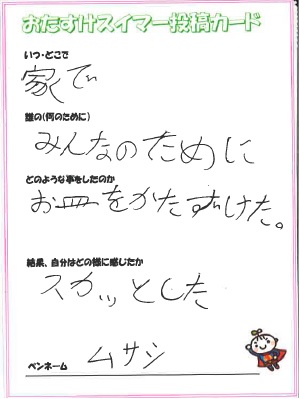 おたすけスイマー投稿カード
いつ・どこで
家で
誰の(何のために)
みんなのために
どのような事をしたのか
お皿をかたずけた。
結果、自分はどの様に感じたか
スカッとした
ペンネーム ムサシ